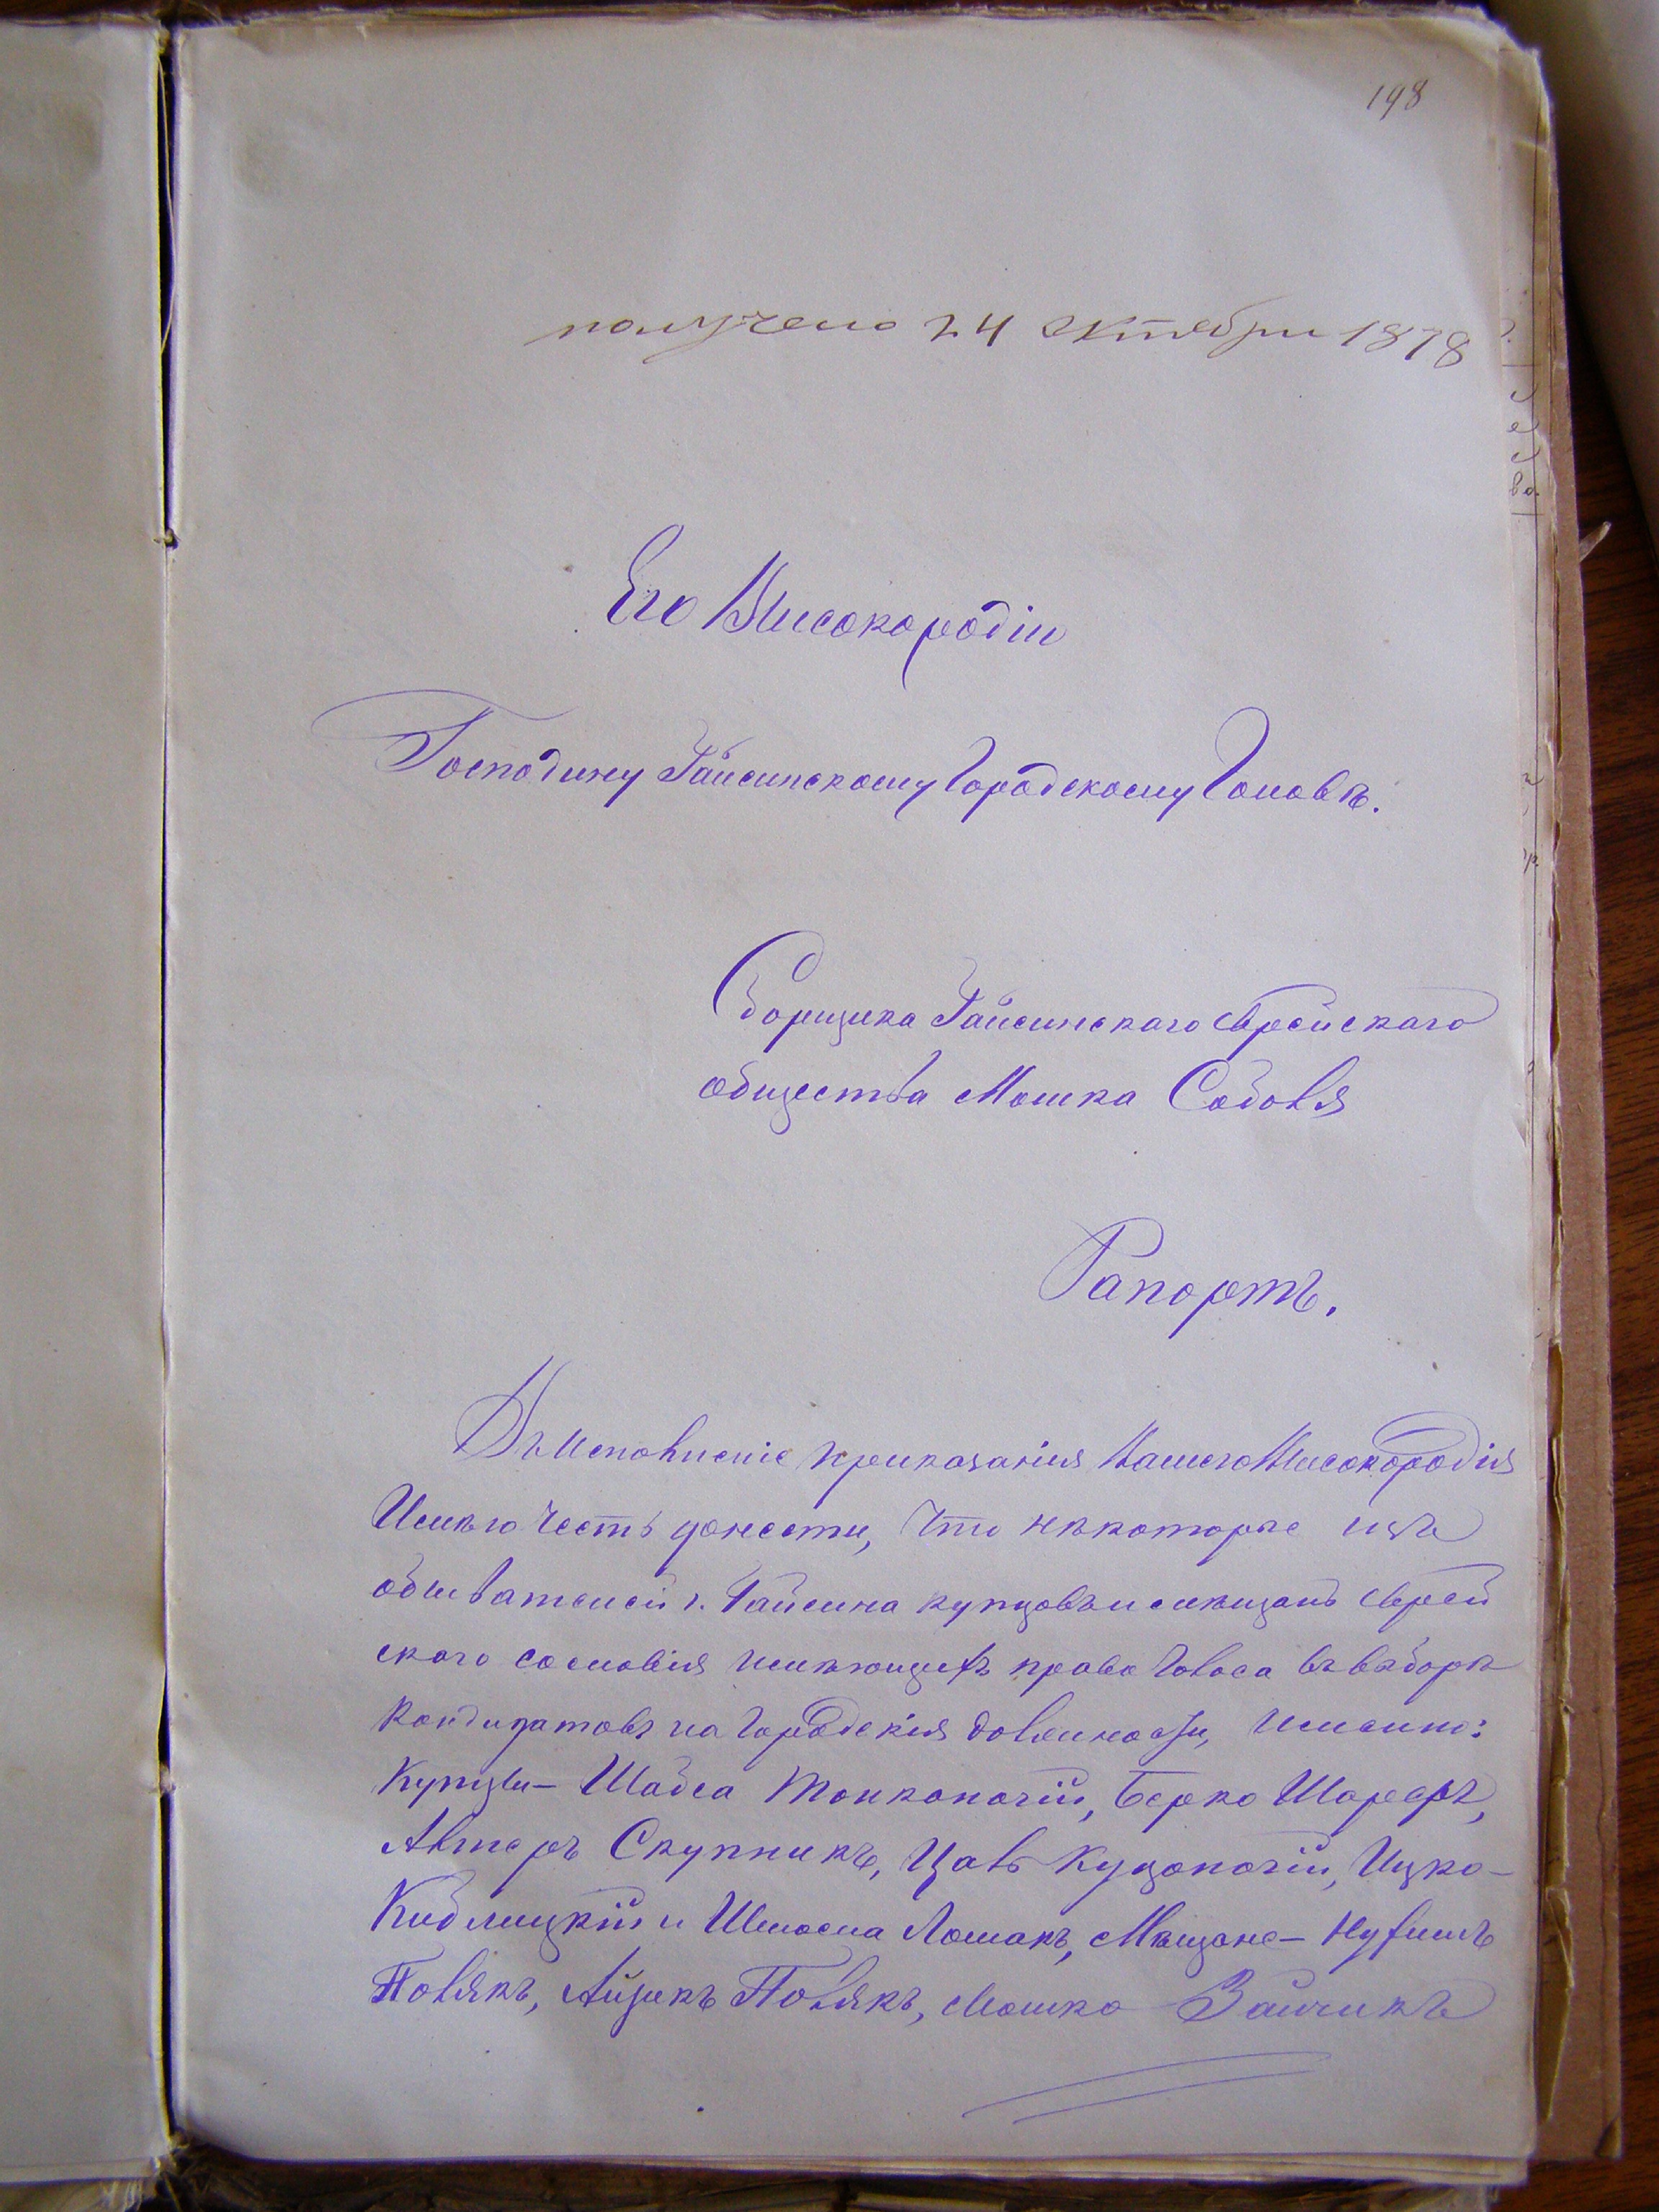 198
получено 24 октября 1878
Его Высокородію
Господину Гайсинскому Городскому Головѣ.
Сборщика Гайсинскаго Еврейскаго
общества Мошка Соболя
Рапортъ.
Въ исполненіе приказанія Вашего Высокородія
Имѣю честь донести, что нѣкоторые изъ
обывателей г. Гайсина купцовъ и мѣщанъ Еврей
скаго сословія имѣющихъ право голоса въ выборѣ
кандидатовъ на Городскія должности, именно:
Купцы – Шабса Тонконогій, Берко Шарфъ,
Алтеръ Скупникъ, Цаль Куцоногій, Ицко –
Киблицкій и Шмоема Лошакъ, Мѣщане – Нухимъ
Полякъ, Айзикъ Полякъ, Мошко Зайчикъ